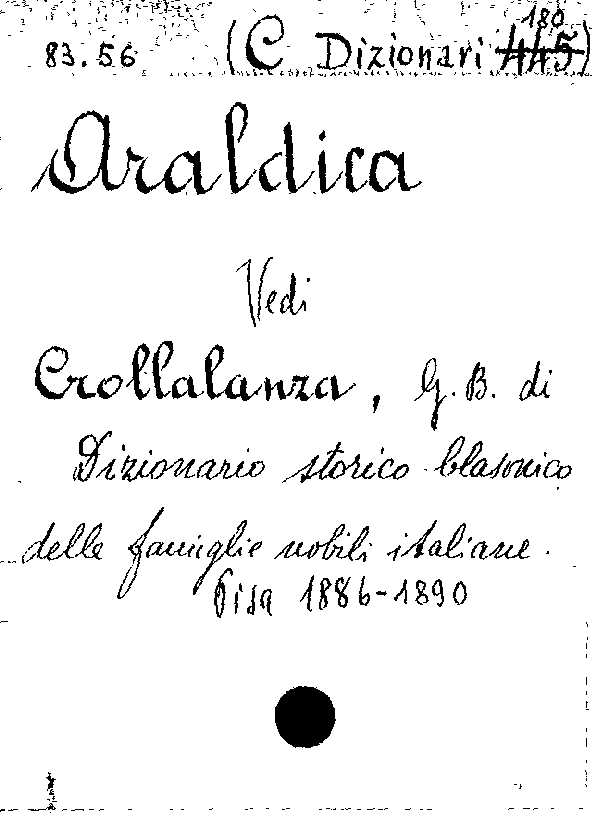 180
83.56 (C Dizionari 445)
Araldica
Vedi
Crollalanza, G. B. di
Dizionario storico blasonico
delle famiglie nobili italiane.
Pisa 1886-1890